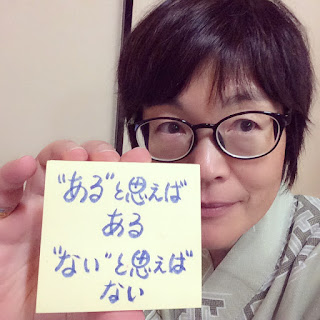 “ある”と思えば
ある
“ない”と思えば
ない